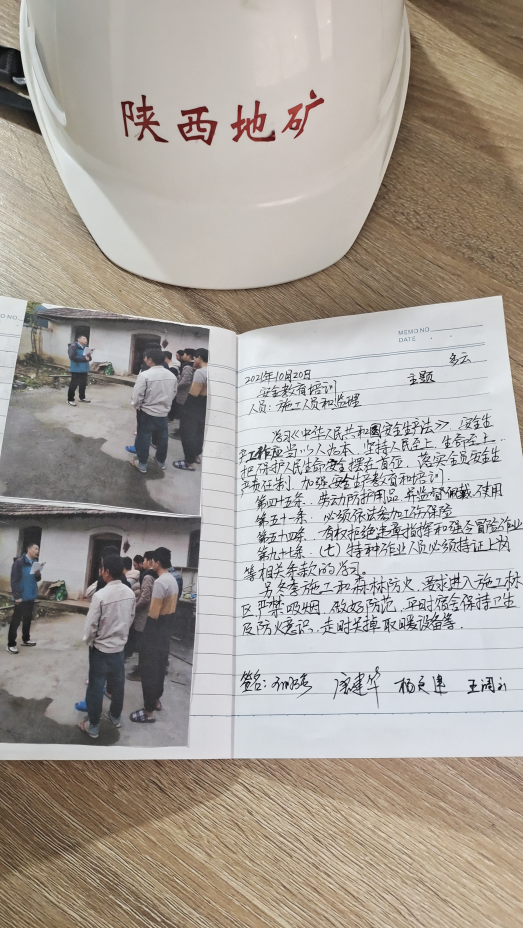 陕西地矿
MEMO NO.
DATE
MEMO NO.
多云
2021年10月20日 主题
安全教育培训
人员：施工人员和监理
学习《中华人民共和国安全生产法》，安全生
产工作应当以人为本，坚持人民至上，生命至上，
把保护人民生命安全摆在首位，落实全员安全生
产责任制，加强安全生产教育和培训。
第四十五条，劳动防护用品，并监督佩戴、使用
第五十一条，必须依法参加工伤保险
第五十四条，有权拒绝违章指挥和强令冒险作业
第九十七条，(七)特种作业人员必须持证上岗
等相关条款的学习。
另冬季施工和森林防火，要求进入施工林
区严禁吸烟，做好防范，平时宿舍保持卫生
及防火意识，走时关掉取暖设备等。
签名：